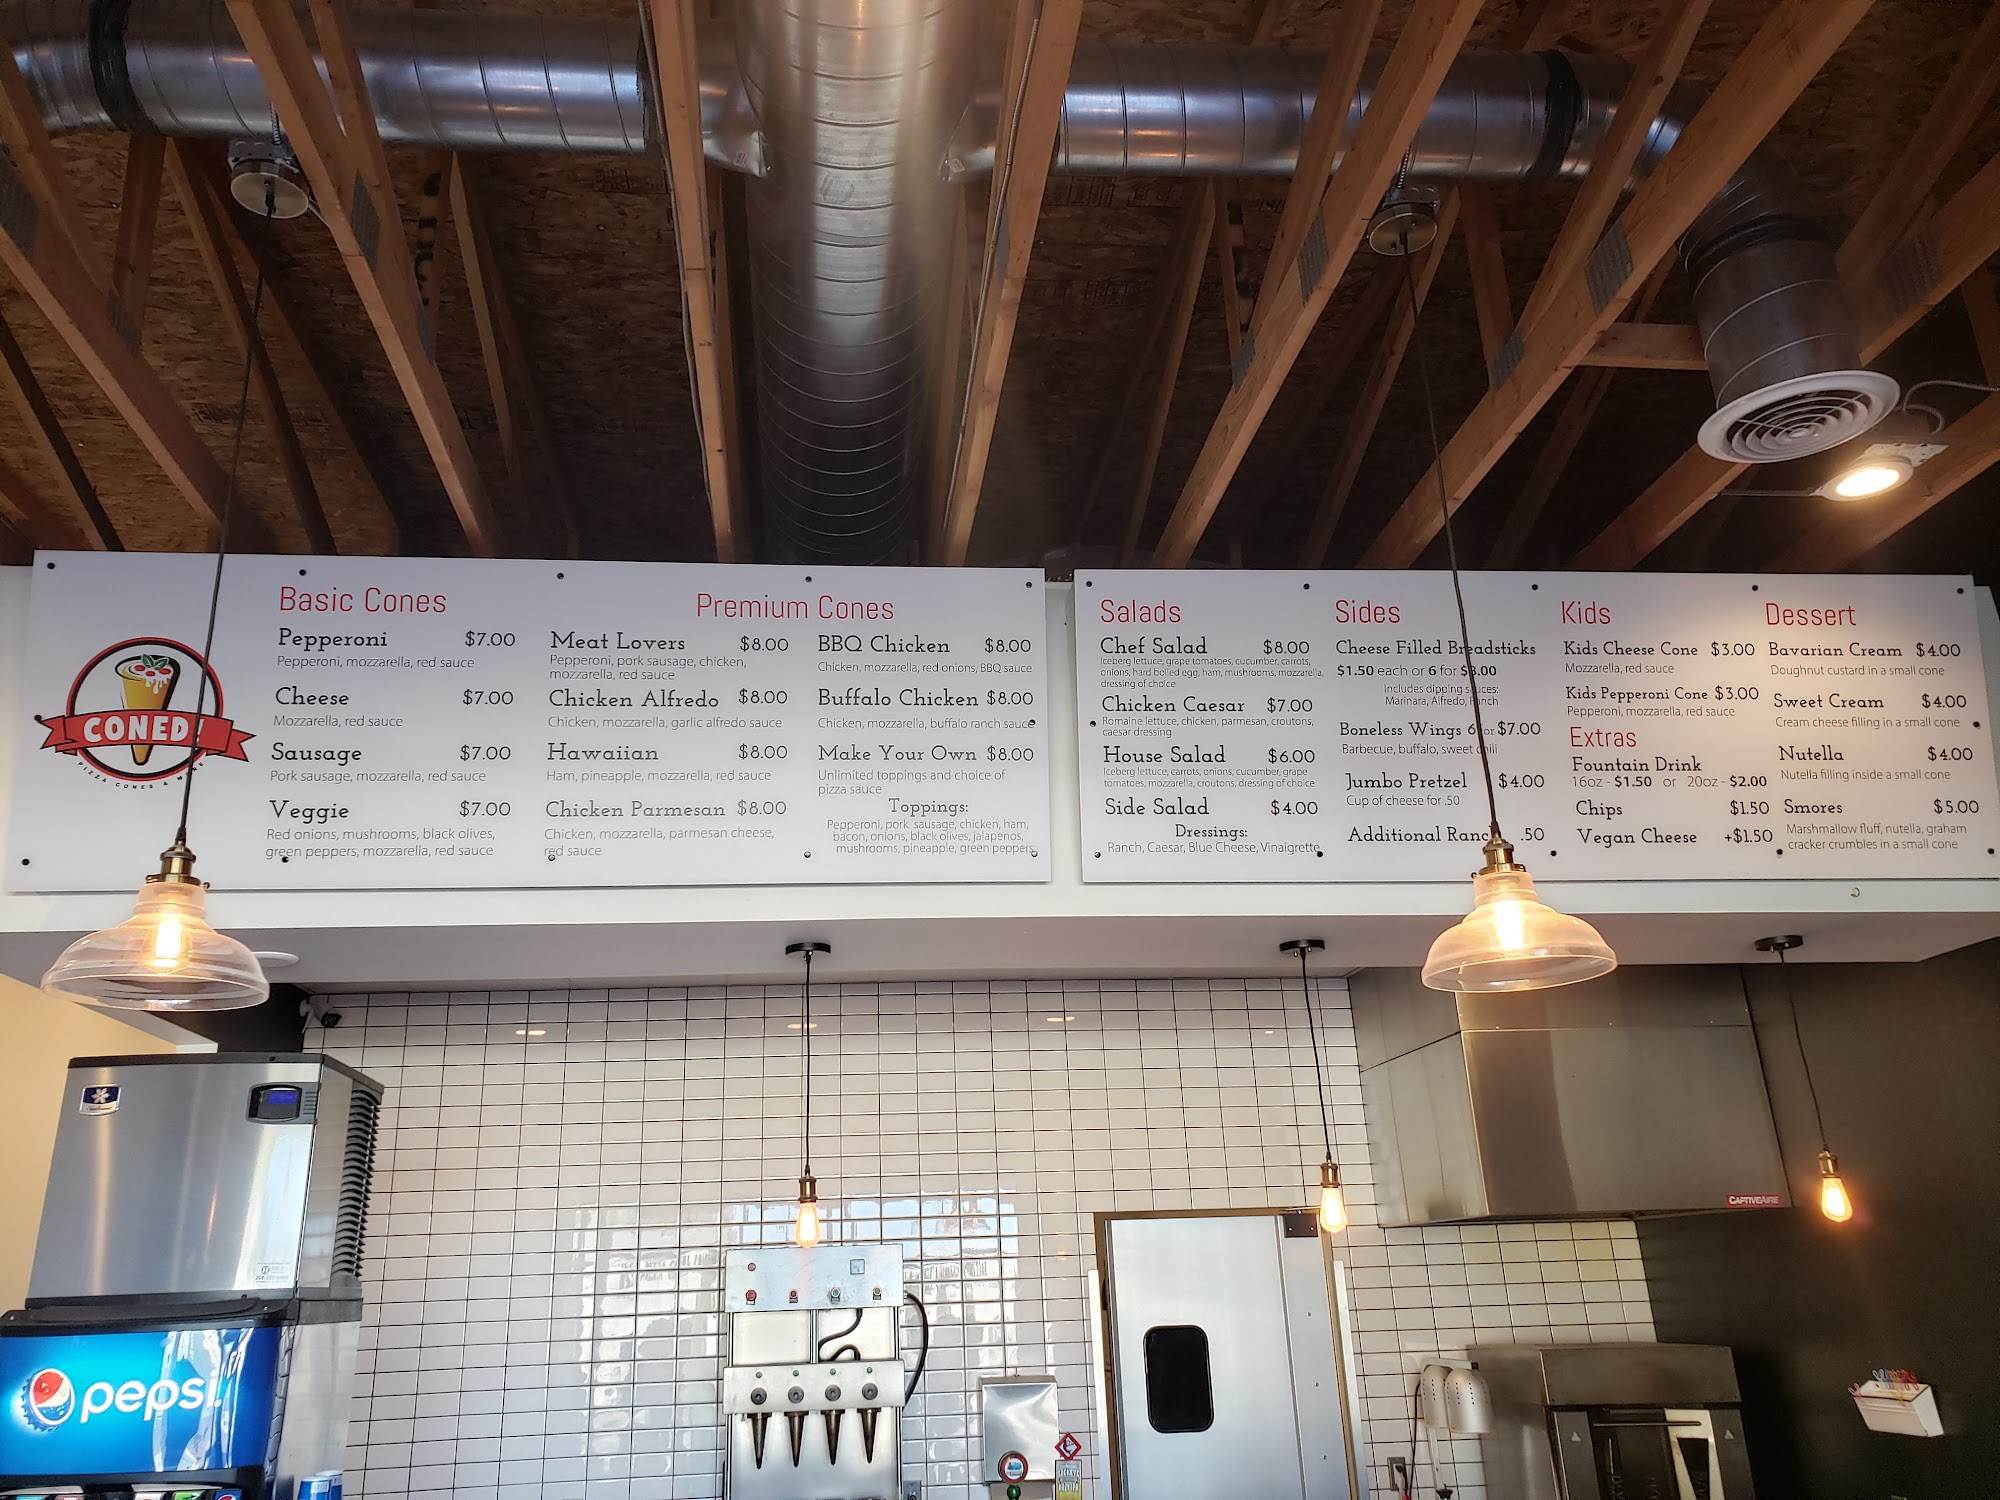 CONED!
PIZZA CONES & MORE
Basic Cones
Pepperoni $7.00
Pepperoni, mozzarella, red sauce
Cheese $7.00
Mozzarella, red sauce
Sausage $7.00
Pork sausage, mozzarella, red sauce
Veggie $7.00
Red onions, mushrooms, black olives,
green peppers, mozzarella, red sauce
Premium Cones
Meat Lovers $8.00
Pepperoni, pork sausage, chicken,
mozzarella, red sauce
Chicken Alfredo $8.00
Chicken, mozzarella, garlic alfredo sauce
Hawaiian $8.00
Ham, pineapple, mozzarella, red sauce
Chicken Parmesan $8.00
Chicken, mozzarella, parmesan cheese,
red sauce
BBQ Chicken $8.00
Chicken, mozzarella, red onions, BBQ sauce
Buffalo Chicken $8.00
Chicken, mozzarella, buffalo ranch sauce
Make Your Own $8.00
Unlimited toppings and choice of
pizza sauce
Toppings:
Pepperoni, pork sausage, chicken, ham,
bacon, onions, black olives, jalapenos,
mushrooms, pineapple, green peppers
Salads
Chef Salad $8.00
Iceberg lettuce, grape tomatoes, cucumber, carrots,
onions, hard boiled egg, ham, mushrooms, mozzarella,
dressing of choice
Chicken Caesar $7.00
Romaine lettuce, chicken, parmesan, croutons,
caesar dressing
House Salad $6.00
Iceberg lettuce, carrots, onions, cucumber, grape
tomatoes, mozzarella, croutons, dressing of choice
Side Salad $4.00
Dressings:
Ranch, Caesar, Blue Cheese, Vinaigrette
Sides
Cheese Filled Breadsticks
$1.50 each or 6 for $8.00
Includes dipping sauces:
Marinara, Alfredo, Ranch
Boneless Wings 6 for $7.00
Barbecue, buffalo, sweet chili
Jumbo Pretzel $4.00
Cup of cheese for .50
Additional Ranch .50
Kids
Kids Cheese Cone $3.00
Mozzarella, red sauce
Kids Pepperoni Cone $3.00
Pepperoni, mozzarella, red sauce
Extras
Fountain Drink
16oz - $1.50 or 20oz - $2.00
Chips $1.50
Vegan Cheese +$1.50
Dessert
Bavarian Cream $4.00
Doughnut custard in a small cone
Sweet Cream $4.00
Cream cheese filling in a small cone
Nutella $4.00
Nutella filling inside a small cone
Smores $5.00
Marshmallow fluff, nutella, graham
cracker crumbles in a small cone
CAPTIVEAIRE
pepsi